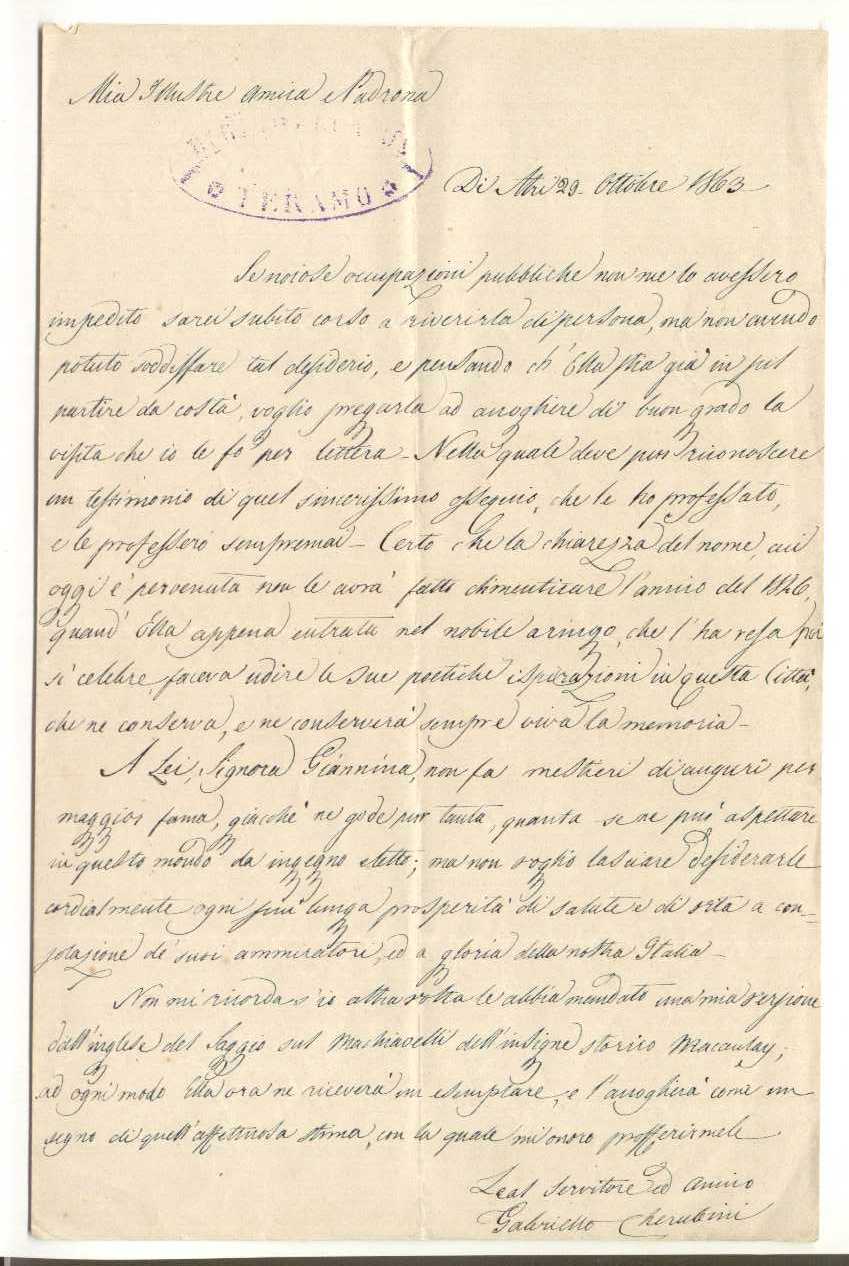 Mia Illustre Amica e Padrona
TERAMO
Di Atri 29. Ottobre 1863
Se noiose occupazioni pubbliche non me lo avessero
impedito sarei subito corso a riverirla di persona, ma non avendo
potuto soddisfare tal desiderio, e pensando ch'Ella stia già in sul
partire da costà, voglio pregarla ad accogliere di buon grado la
visita che io le fo per lettera _ Nella quale deve pur riconoscere
un testimonio di quel sincerissimo ossequio, che le ho professato,
e le professerò sempremai _ Certo che la chiarezza del nome, cui
oggi è pervenuta non le avrà fatto dimenticare l'amico del 1846,
quand'Ella appena entrata nel nobile aringo, che l'ha resa poi
sì celebre, faceva udire le sue poetiche ispirazioni in questa Città,
che ne conserva, e ne conserverà sempre viva la memoria _
A Lei, Signora Giannina, non fa mestieri di auguri per
maggior fama, giacchè ne gode pur tanta, quanta se ne può aspettare
in questo mondo da ingegno eletto; ma non voglio lasciare desiderarle
cordialmente ogni più lunga prosperità di salute e di vita a con-
solazione de' suoi ammiratori, ed a gloria della nostra Italia _
Non mi ricorda s'io altra volta le abbia mandato una mia versione
dall'inglese del Saggio sul Machiavelli dell'insigne storico Macaulay;
ad ogni modo Ella ora ne riceverà un esemplare, e l'accoglierà come un
segno di quell'affettuosa stima, con la quale mi onoro profferirmele
Leal servitore ed amico
Gabriello Cherubini